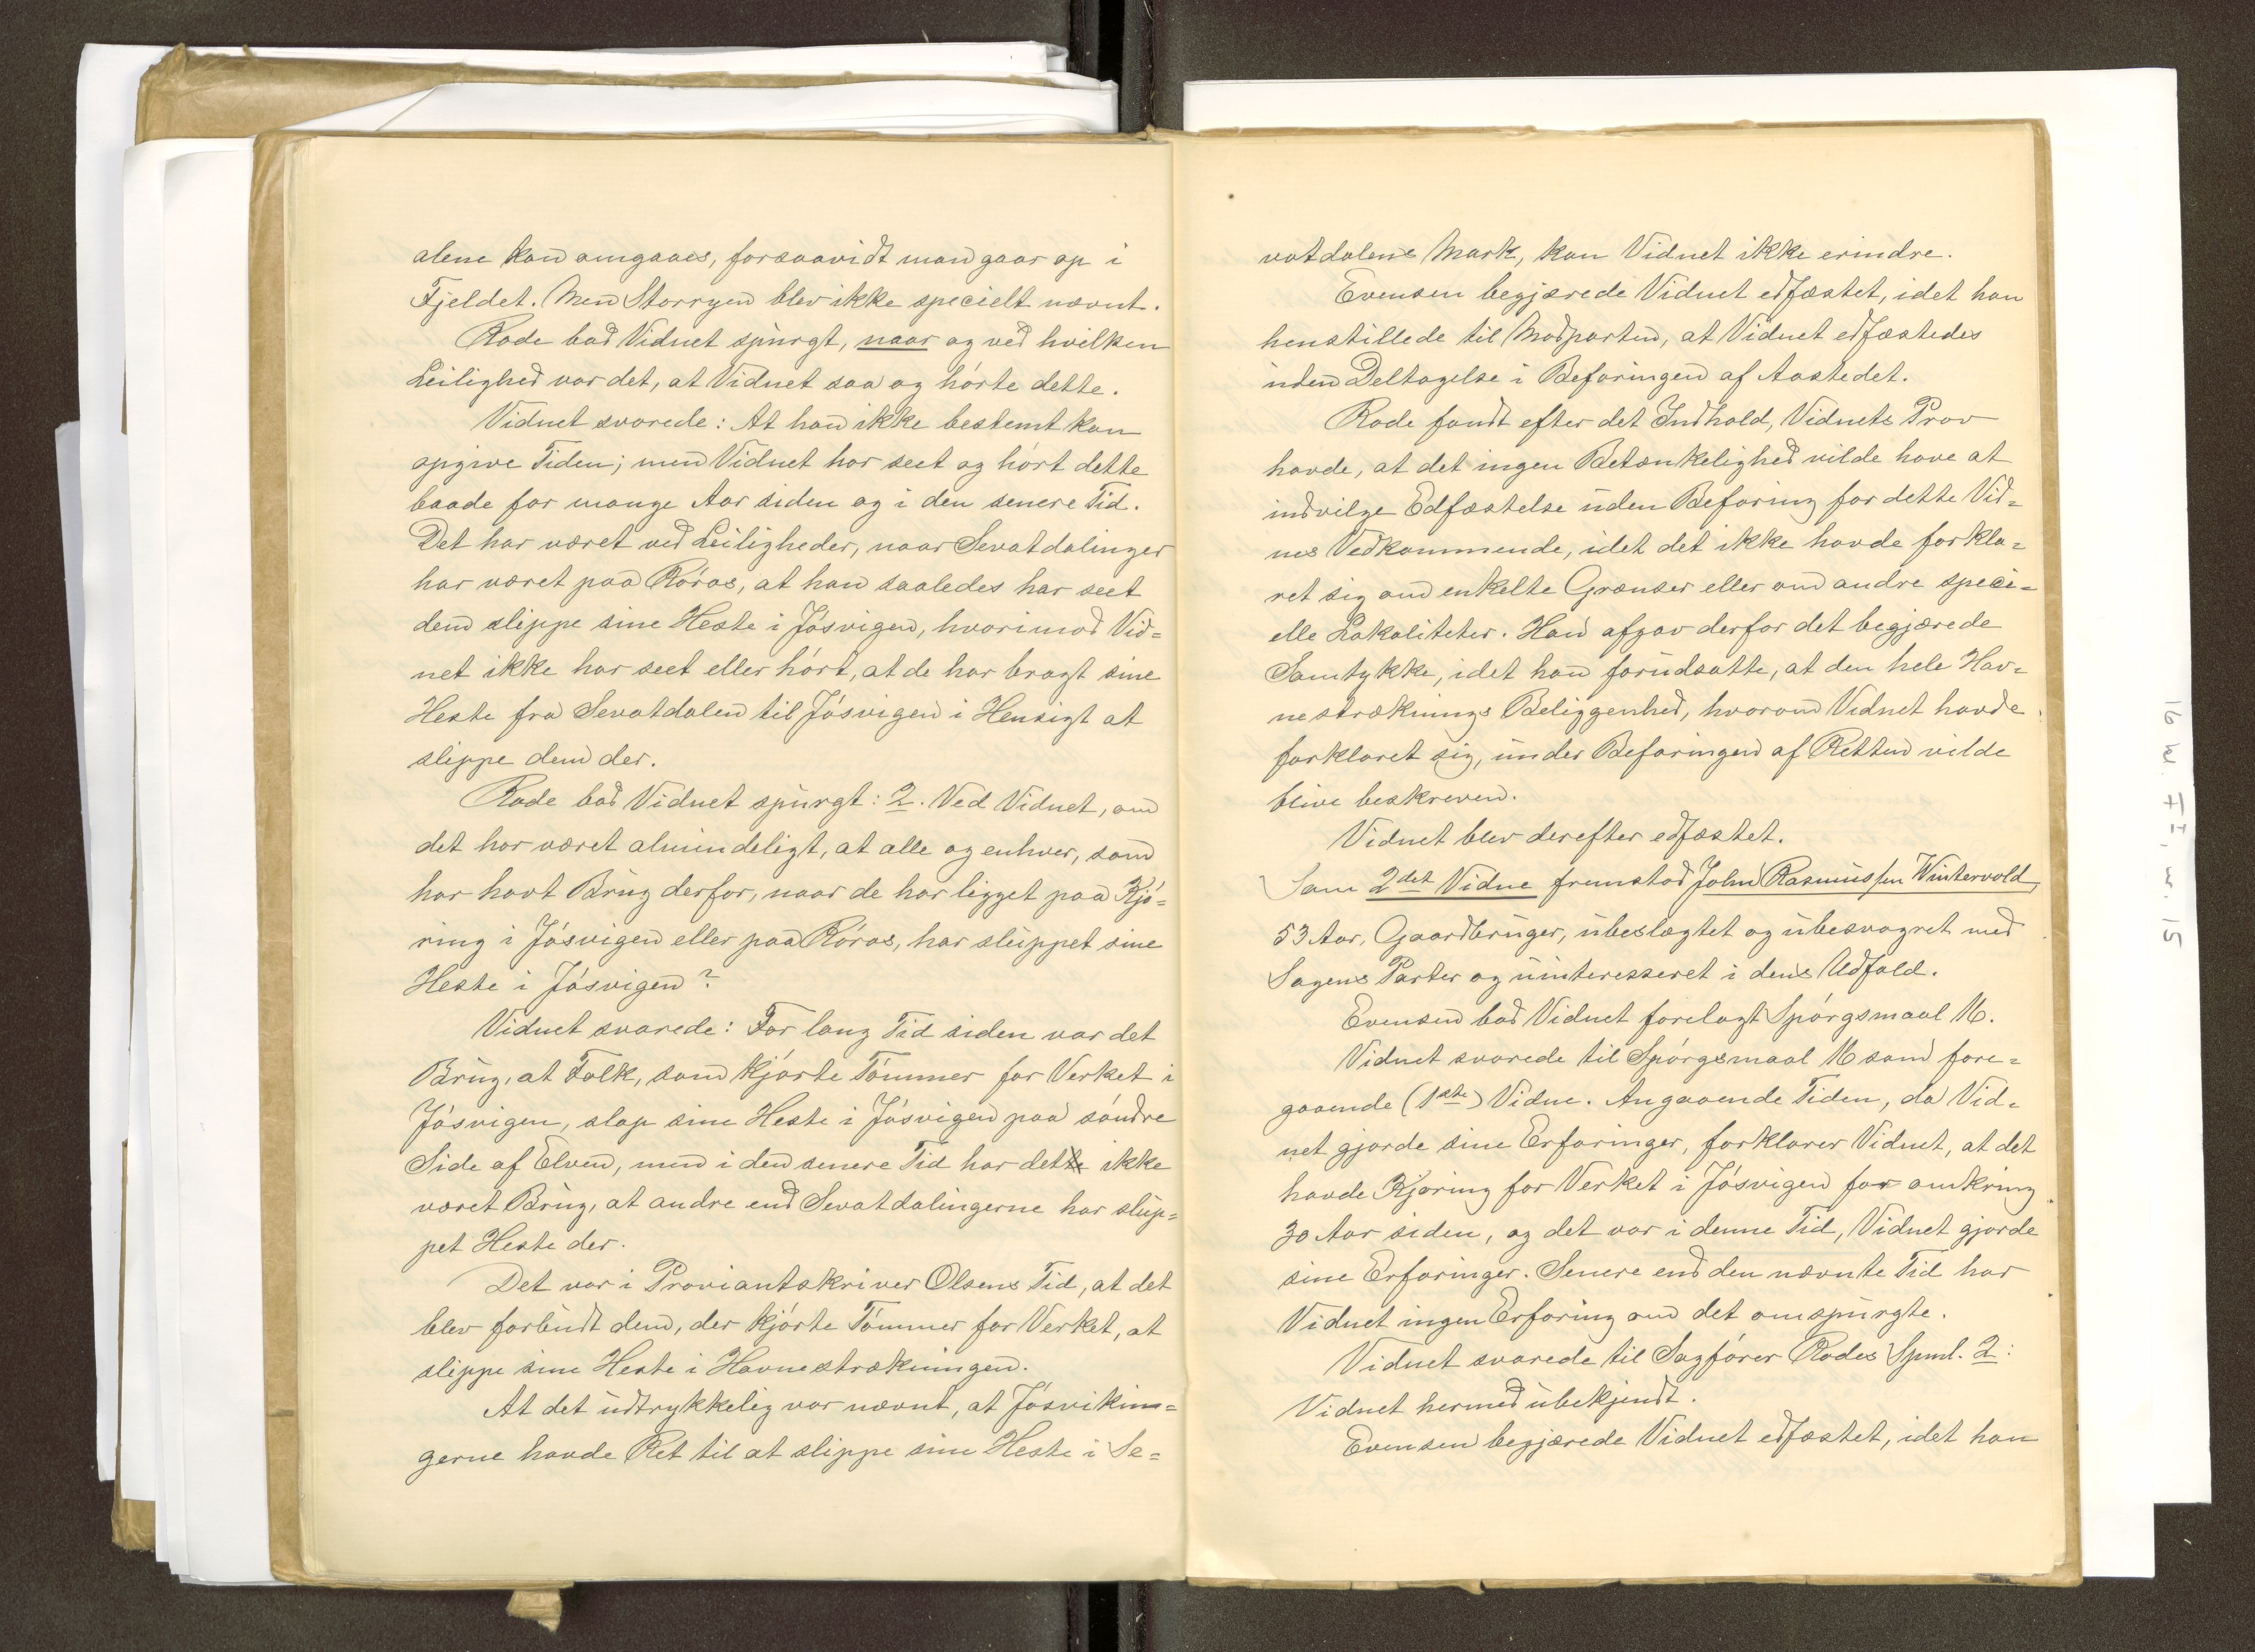 alene kan omgaaes, forsaavidt man gaar op i
Fjeldet. Men Storryen blev ikke specielt nævnt.
Rode bad Vidnet spurgt, naar og ved hvilken
Leilighed var det, at Vidnet saa og hørte dette.
Vidnet svarede: At han ikke bestemt kan
opgive Tiden; men Vidnet har seet og hørt dette
baade for mange Aar siden og i den senere Tid.
Det har været ved Leiligheder, naar Sevatdalinger
har været paa Røros, at han saaledes har seet
dem slippe sine Heste i Jósvigen, hvorimod Vid=
net ikke har seet eller hørt, at de har bragt sine
Heste fra Sevatdalen til Jósvigen i Hensigt at
slippe dem der.
Rode bad Vidnet spurgt: 2. Ved Vidnet, om
det har været almindeligt, at alle og enhver, som
har havt Brug derfor, naar de har ligget paa Kjø=
ring i Jósvigen eller paa Røros, har sluppet sine
Heste i Jósvigen?
Vidnet svarede: For lang Tid siden var det
Brug, at Folk, som kjørte Tømmer for Verket i
Jósvigen, slap sine Heste i Jósvigen paa søndre
Side af Elven, men i den senere Tid har dette ikke
været Brug, at andre end Sevatdalingerne har slup=
pet Heste der.
Det var i Proviantskriver Olsens Tid, at det
blev forbudt dem, der kjørte Tømmer for Verket, at
slippe sine Heste i Havnestrækningen.
At det udtrykkelig var nævnt, at Jósvikin=
gerne havde Ret til at slippe sine Heste i Se=
vatdalens Mark, kan Vidnet ikke erindre.
Evensen begjærede Vidnet edfæstet, idet han
henstillede til Modparten, at Vidnet edfæstedes
uden Deltagelse i Befaringen af Aastedet.
Rode fandt efter det Indhold, Vidnets Prov
havde, at det ingen Betænkelighed vilde have at
indvilge Edfæstelse uden Befaring for dette Vid=
nes Vedkommende, idet det ikke havde forkla=
ret sig om enkelte Grænser eller om andre speci=
elle Lokaliteter. Han afgav derfor det begjærede
Samtykke, idet han forudsatte, at den hele Hav=
nestræknings Beliggenhed, hvorom Vidnet havde
forklaret sig, under Befaringen af Retten vilde
blive beskreven.
Vidnet blev derefter edfæstet.
Som 2det Vidne fremstod John Rasmussen Wintervold,
53 Aar, Gaardbruger, ubeslægtet og ubesvogret med
Sagens Parter og uinteresseret i dens Udfald.
Evensen bad Vidnet forelagt Spørgsmaal 16.
Vidnet svarede til Spørgsmaal 16 som fore=
gaaende (1ste) Vidne. Angaaende Tiden, da Vid=
net gjorde sine Erfaringer, forklarer Vidnet, at det
havde Kjøring for Verket i Jósvigen for omkring
30 Aar siden, og det var i denne Tid, Vidnet gjorde
sine Erfaringer. Senere end den nævnte Tid har
Vidnet ingen Erfaring om det omspurgte.
Vidnet svarede til Sagfører Rodes Spml. 2:
Vidnet hermed ubekjendt.
Evensen begjærede Vidnet edfæstet, idet han